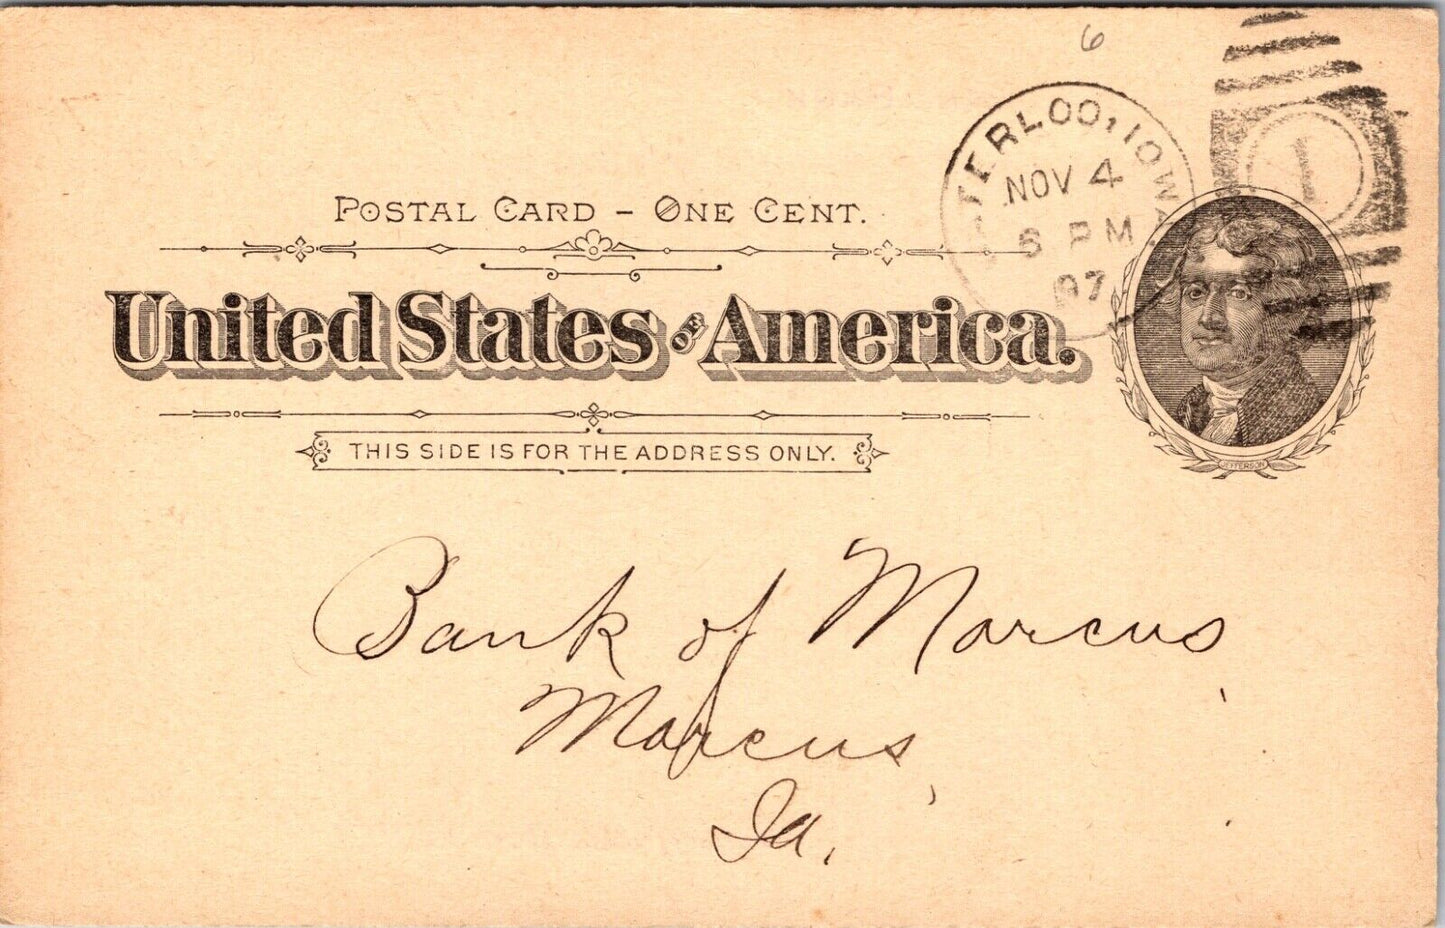 6
WATERLOO, IOWA.
NOV 4
6 PM
97
1
POSTAL CARD - ONE CENT.
United States OF America.
THIS SIDE IS FOR THE ADDRESS ONLY.
JEFFERSON
Bank of Marcus
Marcus
Ia.